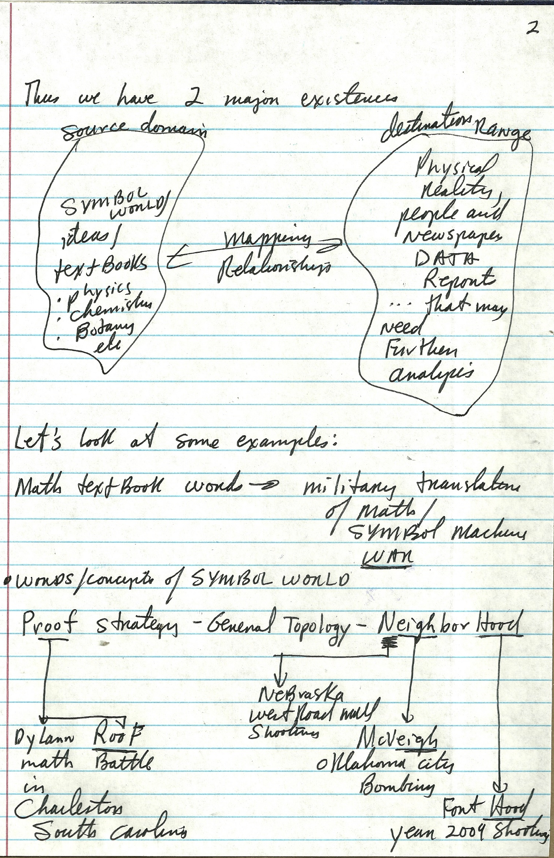 2
Thus we have 2 major existences
source domain
destination Range
SYMBOL
WORLD/
ideas/
textBooks
• Physics
• chemistry
• Botany
etc
Mapping
Relationships
Physical
Reality,
people and
Newspaper
DATA
Report
... that may
need
Further
analysis
Let's look at some examples:
Math textBook words → military translation
of math/
SYMBOL Machine
WAR
• words/concepts of SYMBOL WORLD
Proof strategy - General Topology - Neighbor Hood
Nebraska
westRoad mall
Shooting
Dylann Roof
math Battle
in
Charleston
South Carolina
McVeigh
oklahoma city
Bombing
Fort Hood
year 2009 Shooting